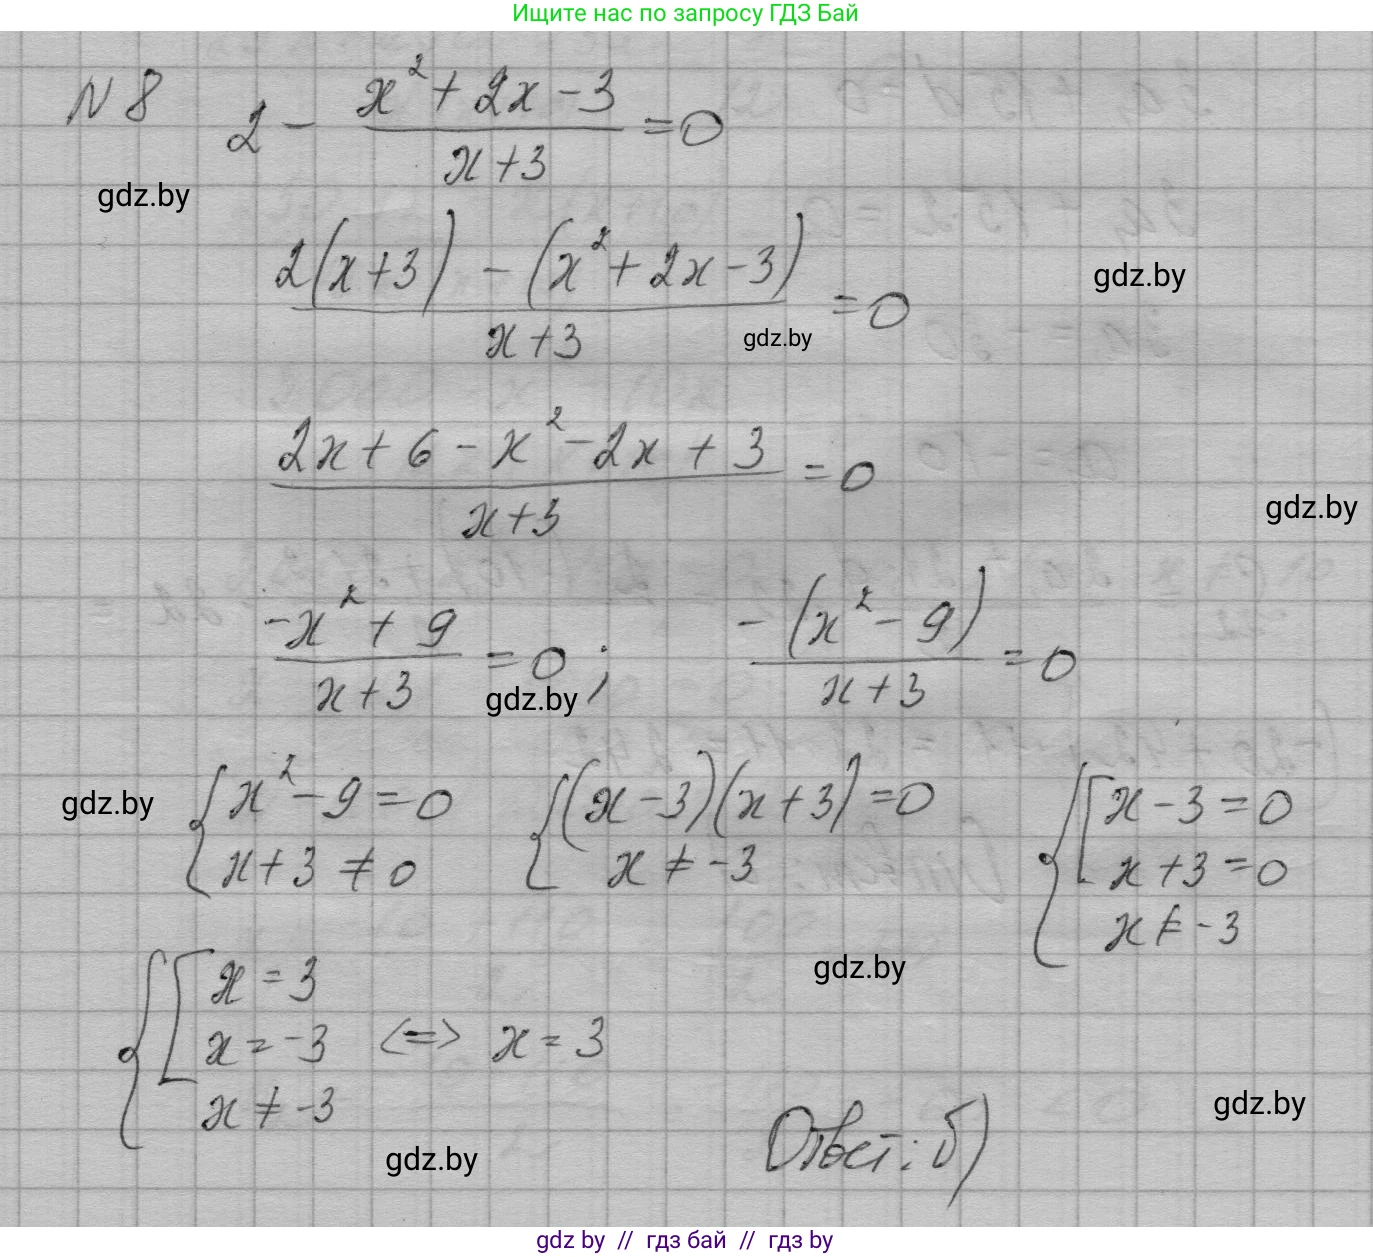 Ищите нас по запросу ГДЗ Бай
N 8 2 - (x² + 2x - 3)/(x + 3) = 0
gdz.by
(2(x+3) - (x² + 2x - 3))/(x + 3) = 0
gdz.by
gdz.by
(2x + 6 - x² - 2x + 3)/(x+3) = 0
gdz.by
(-x² + 9)/(x+3) = 0; (-(x² - 9))/(x+3) = 0
gdz.by
gdz.by
{x² - 9 = 0 {(x-3)(x+3) = 0 {[x - 3 = 0
x+3 ≠ 0 x ≠ -3 x + 3 = 0
x ≠ -3
gdz.by
{[x = 3
x = -3 <=> x = 3
x ≠ -3
gdz.by
Ответ: б)
gdz.by
gdz by // гдз бай // гдз by